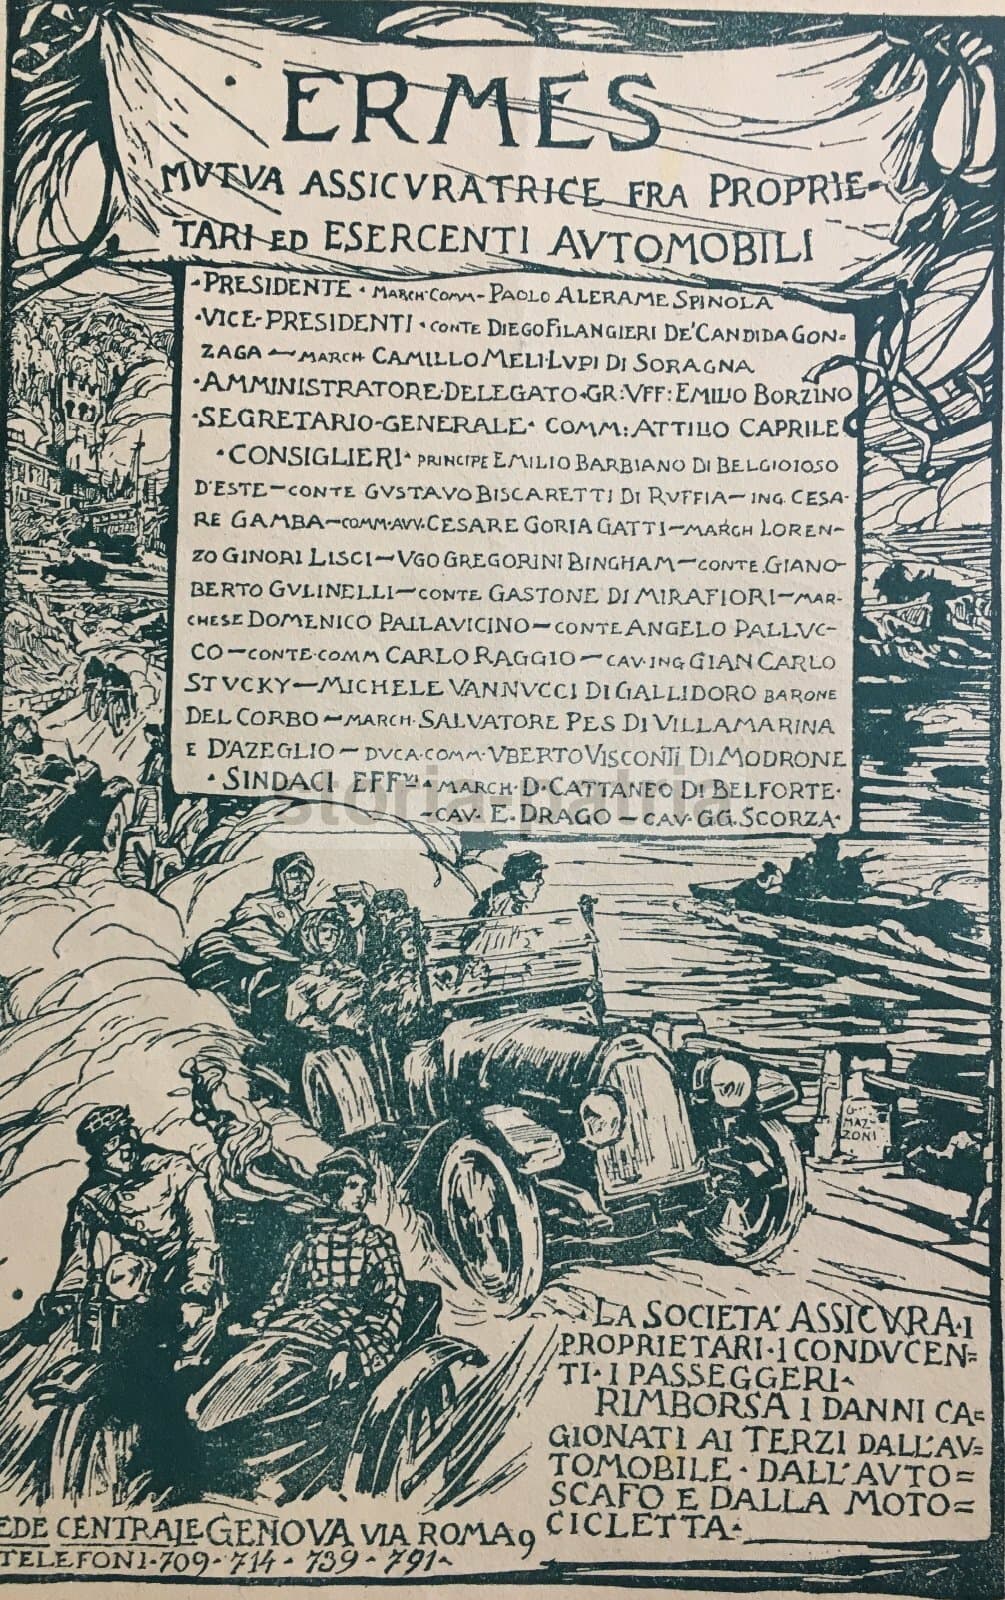 ERMES
MVTVA ASSICVRATRICE FRA PROPRIE-
TARI ED ESERCENTI AVTOMOBILI
·PRESIDENTE· MARCH·COMM- PAOLO ALERAME SPINOLA
·VICE-PRESIDENTI· CONTE DIEGO FILANGIERI DE' CANDIDA GON-
ZAGA — MARCH CAMILLO MELI LVPI DI SORAGNA
·AMMINISTRATORE·DELEGATO·GR:VFF: EMILIO BORZINO
·SEGRETARIO-GENERALE· COMM: ATTILIO CAPRILE
·CONSIGLIERI· PRINCIPE EMILIO BARBIANO DI BELGIOIOSO
D'ESTE — CONTE GVSTAVO BISCARETTI DI RVFFIA — ING. CESA-
RE GAMBA — COMM·AVV. CESARE GORIA GATTI — MARCH LOREN-
ZO GINORI LISCI — VGO GREGORINI BINGHAM — CONTE GIANO-
BERTO GVLINELLI — CONTE GASTONE DI MIRAFIORI — MAR-
CHESE DOMENICO PALLAVICINO — CONTE ANGELO PALLVC-
CO — CONTE·COMM CARLO RAGGIO — CAV·ING GIAN CARLO
STVCKY — MICHELE VANNVCCI DI GALLIDORO BARONE
DEL CORBO — MARCH· SALVATORE PES DI VILLAMARINA
E D'AZEGLIO — DVCA·COMM· VBERTO VISCONTI DI MODRONE
· SINDACI EFFVI · MARCH·D·CATTANEO DI BELFORTE·
-CAV. E. DRAGO — CAV·GG. SCORZA·
storia-patria
MAZ-
ZONI
LA SOCIETA' ASSICVRA·I
PROPRIETARI·I CONDVCEN=
TI·I PASSEGGERI·
RIMBORSA I DANNI CA=
GIONATI AI TERZI DALL'AV=
TOMOBILE · DALL'AVTO=
SCAFO E DALLA MOTO=
CICLETTA·
EDE CENTRALE GENOVA VIA ROMA 9
TELEFONI·709·714·739·791·